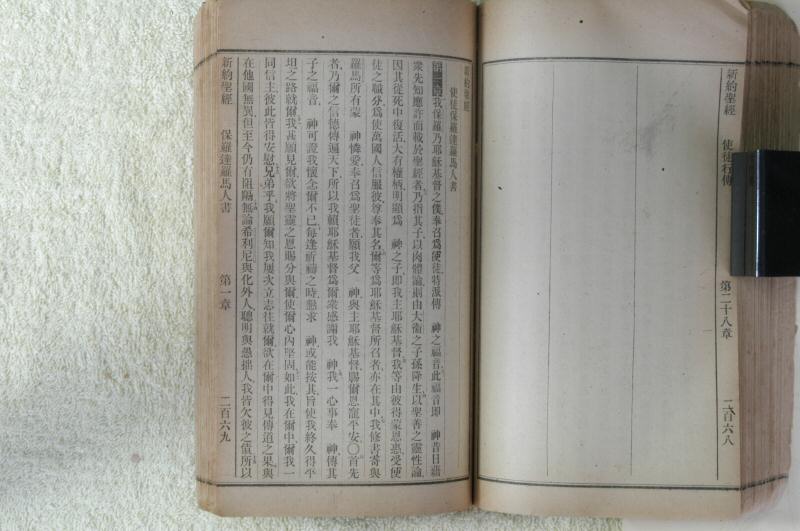 新約聖經 使徒行傳 第二十八章 二百六八
新約聖經
使徒保羅達羅馬人書
第一章 我保羅乃耶穌基督之僕奉召爲使徒特派傳 神之福音此福音卽 神昔日藉
衆先知應許而載於聖經者乃指其子以肉體論則由大衞之子孫降生以聖善之靈性論
因其從死中復活大有權柄明顯爲 神之子卽我主耶穌基督我等由彼得蒙恩惠受使
徒之職分爲使萬國人信服彼尊奉其名爾等爲耶穌基督所召者亦在其中我修書寄與
羅馬所有蒙 神憐愛奉召爲聖徒者願我父 神與主耶穌基督賜爾恩寵平安〇首先
者乃爾之信德傳遍天下所以我賴耶穌基督爲爾衆感謝我 神我一心事奉 神傳其
子之福音 神可證我懷念爾不已每逢祈禱之時懇求 神或能按其旨使我終久得平
坦之路就爾我甚願見爾欲將聖靈之恩賜分與爾使爾心內堅固如此我在爾中爾我一
同信主彼此皆得安慰兄弟乎我願爾知我屢次立志往就爾欲在爾中得見傳道之果與
在他國無異但至今仍有阻隔無論希利尼與化外人聰明與愚拙人我皆欠彼之債所以
新約聖經 保羅達羅馬人書 第一章 二百六九